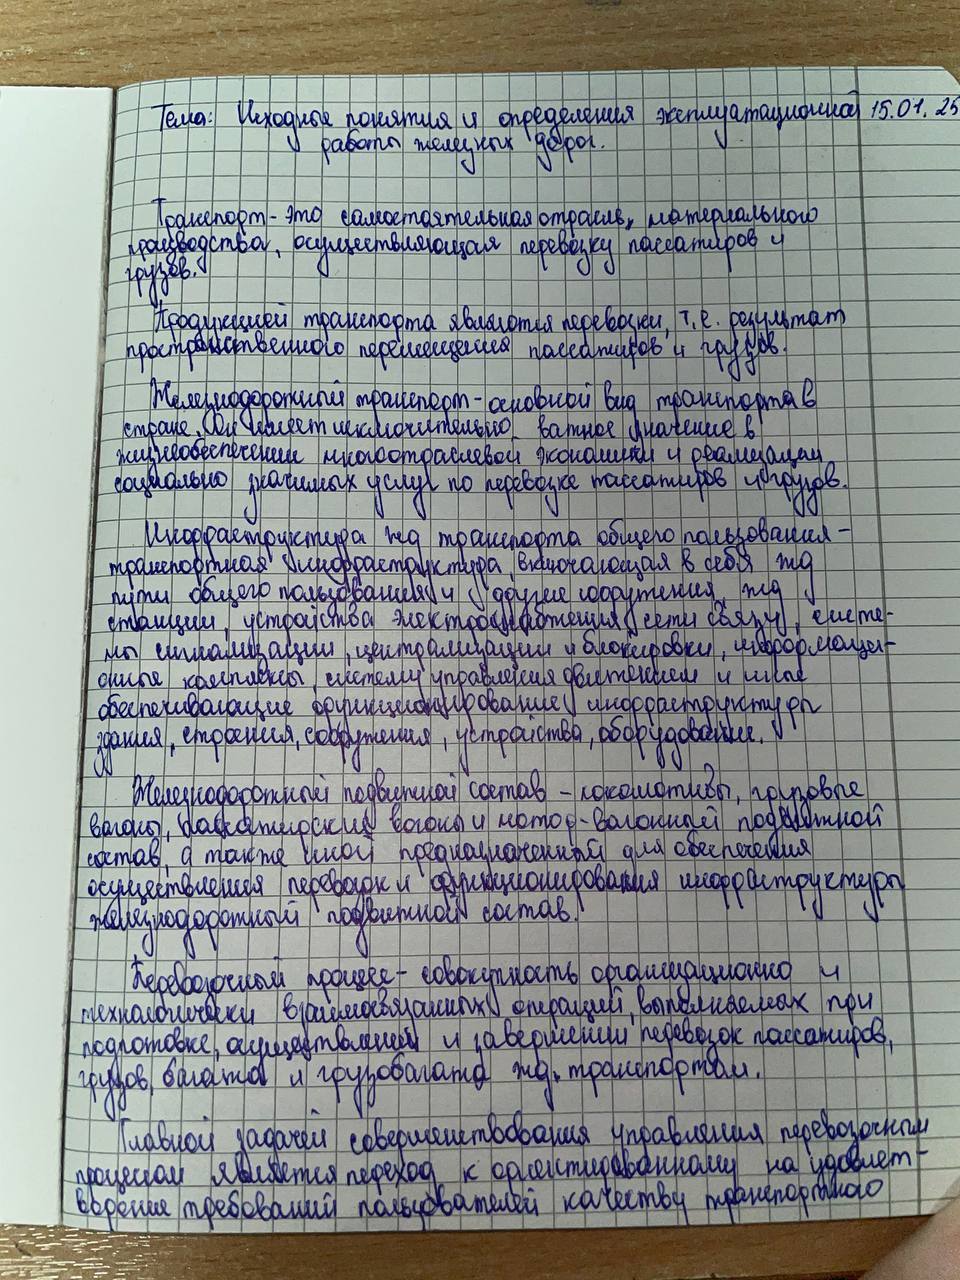 Тема: Исходные понятия и определения эксплуатационной 15.01.25
работы железных дорог.
Транспорт - это самостоятельная отрасль, материального
производства, осуществляющая перевозку пассажиров и
грузов.
Продукцией транспорта являются перевозки, т.е. результат
пространственного перемещения пассажиров и грузов.
Железнодорожный транспорт - основной вид транспорта в
стране. Он имеет исключительно важное значение в
жизнеобеспечении многоотраслевой экономики и реализации
социально значимых услуг по перевозке пассажиров и грузов.
Инфраструктура жд транспорта общего пользования -
транспортная инфраструктура, включающая в себя жд
пути общего пользования и другие сооружения, жд
станции, устройства электроснабжения, сети связи, систе-
мы сигнализации, централизации и блокировки, информаци-
онные комплексы, систему управления движением и иные
обеспечивающие функционирование инфраструктуры
здания, строения, сооружения, устройства, оборудование.
Железнодорожный подвижной состав - локомотивы, грузовые
вагоны, пассажирские вагоны и мотор-вагонный подвижной
состав, а также иной предназначенный для обеспечения
осуществления перевозок и функционирования инфраструктуры
железнодорожный подвижной состав.
Перевозочный процесс - совокупность организационно и
технологически взаимосвязанных операций, выполняемых при
подготовке, осуществлении и завершении перевозок пассажиров,
грузов, багажа и грузобагажа жд. транспортом.
Главной задачей совершенствования управления перевозочным
процессом является переход к ориентированному на удовлет-
ворение требований пользователей качеству транспортного